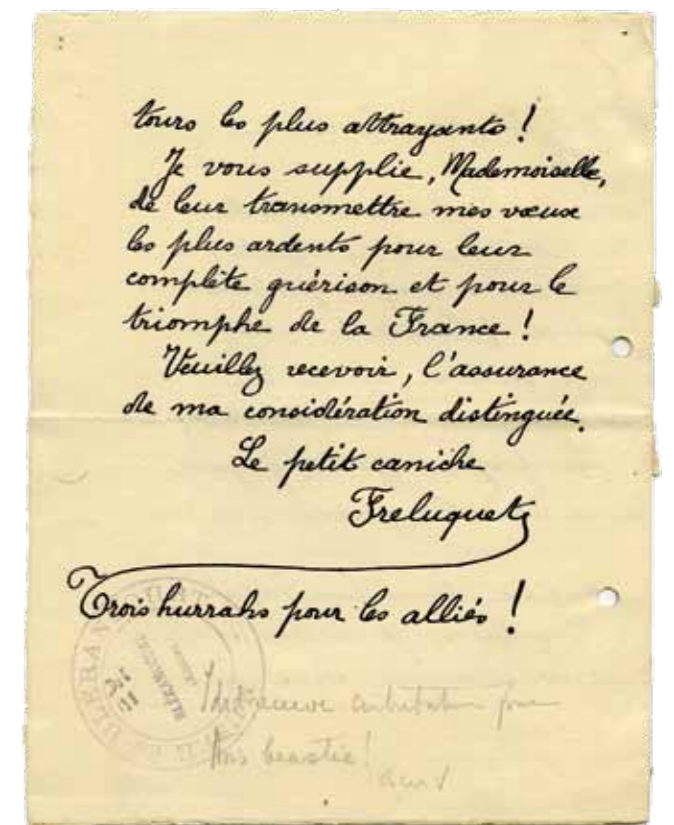 tours les plus attrayants !
Je vous supplie, Mademoiselle,
de leur transmettre mes vœux
les plus ardents pour leur
complète guérison et pour le
triomphe de la France !
Veuillez recevoir, l'assurance
de ma considération distinguée.
Le petit caniche
Freluquet
Trois hurrahs pour les alliés !
this beastie!